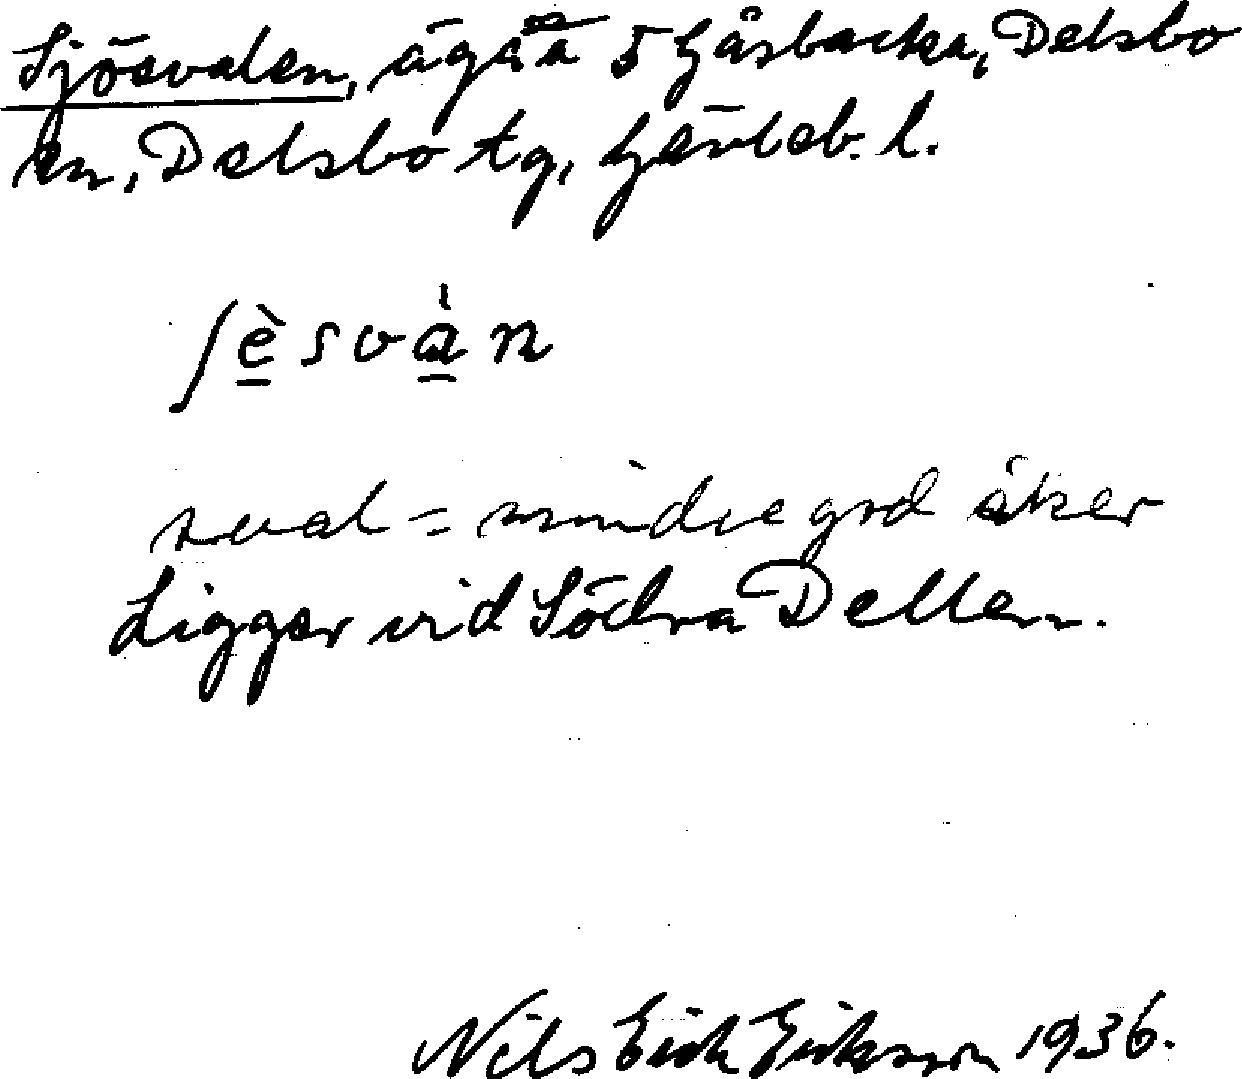 Sjösvalen, ägaä 5 Gåsbacka, Delsbo
sn, Delsbo tg, Gävleb. l.
ʃè̱svà̱n
sval = mindre grd åker
Ligger vid Södra Dellen.
Nils Erik Eriksson 1936.